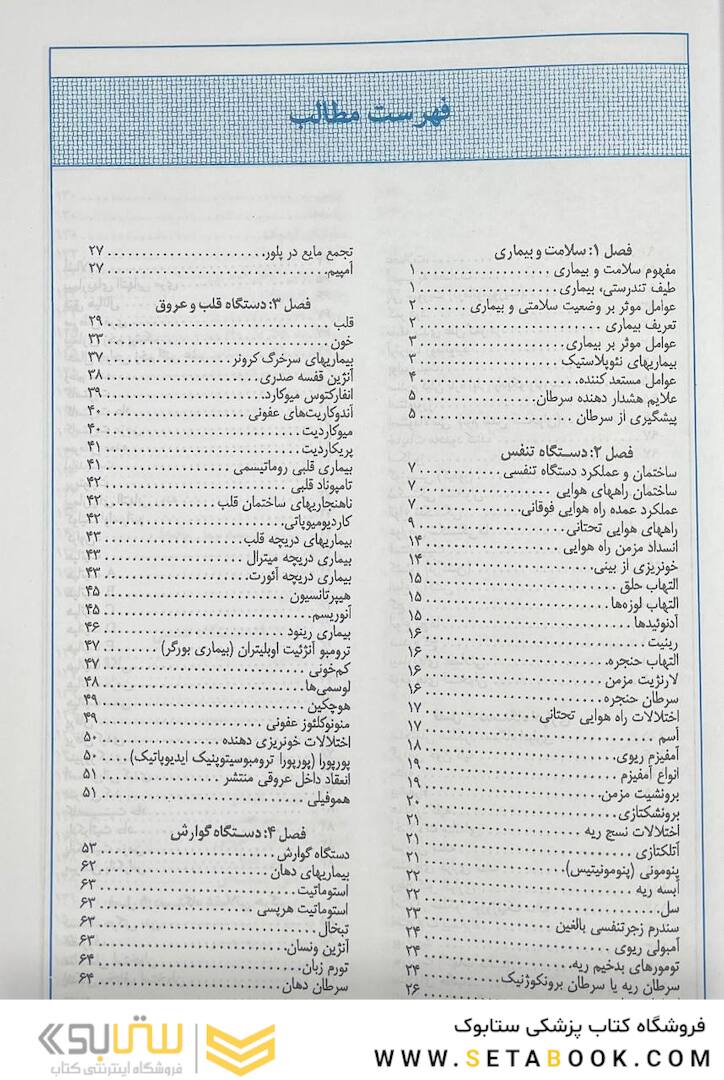 فهرست مطالب
فصل ۱: سلامت و بیماری
مفهوم سلامت و بیماری ۱
طیف تندرستی، بیماری ۱
عوامل موثر بر وضعیت سلامتی و بیماری ۲
تعریف بیماری ۲
عوامل موثر بر بیماری ۳
بیماریهای نئوپلاستیک ۳
عوامل مستعد کننده ۴
علایم هشدار دهنده سرطان ۵
پیشگیری از سرطان ۵
فصل ۲: دستگاه تنفس
ساختمان و عملکرد دستگاه تنفسی ۷
ساختمان راههای هوایی ۷
عملکرد عمده راه هوایی فوقانی ۷
راههای هوایی تحتانی ۹
انسداد مزمن راه هوایی ۱۴
خونریزی از بینی ۱۴
التهاب حلق ۱۵
التهاب لوزه‌ها ۱۵
آدنوئیدها ۱۵
رینیت ۱۶
التهاب حنجره ۱۶
لارنژیت مزمن ۱۶
سرطان حنجره ۱۶
اختلالات راه هوایی تحتانی ۱۷
آسم ۱۷
آمفیزم ریوی ۱۸
انواع آمفیزم ۱۹
برونشیت مزمن ۱۹
برونشکتازی ۲۰
اختلالات نسج ریه ۲۱
آتلکتازی ۲۱
پنومونی (پنومونیتیس) ۲۱
آبسه ریه ۲۲
سل ۲۲
سندرم زجرتنفسی بالغین ۲۳
آمبولی ریوی ۲۴
تومورهای بدخیم ریه ۲۴
سرطان ریه یا سرطان برونکوژنیک ۲۴
۲۶
تجمع مایع در پلور ۲۷
آمپیم ۲۷
فصل ۳: دستگاه قلب و عروق
قلب ۲۹
خون ۳۳
بیماریهای سرخرگ کرونر ۳۷
آنژین قفسه صدری ۳۸
انفارکتوس میوکارد ۳۹
آندوکاریت‌های عفونی ۴۰
میوکاردیت ۴۰
پریکاردیت ۴۱
بیماری قلبی روماتیسمی ۴۱
تامپوناد قلبی ۴۲
ناهنجاریهای ساختمان قلب ۴۲
کاردیومیوپاتی ۴۲
بیماریهای دریچه قلب ۴۳
بیماری دریچه میترال ۴۳
بیماری دریچه آئورت ۴۳
هیپرتانسیون ۴۵
آنوریسم ۴۵
بیماری رینود ۴۶
ترومبو آنژئیت اوبلیتران (بیماری بورگر) ۴۷
کم‌خونی ۴۷
لوسمی‌ها ۴۸
هوچکین ۴۹
منونوکلئوز عفونی ۴۹
اختلالات خونریزی دهنده ۵۰
پورپورا (پورپورا ترومبوسیتوپنیک ایدیوپاتیک) ۵۰
انعقاد داخل عروقی منتشر ۵۱
هموفیلی ۵۱
فصل ۴: دستگاه گوارش
دستگاه گوارش ۵۳
بیماریهای دهان ۶۲
استوماتیت ۶۳
استوماتیت هرپسی ۶۳
تبخال ۶۳
آنژین ونسان ۶۳
تورم زبان ۶۴
سرطان دهان ۶۴
فروشگاه کتاب پزشکی ستابوک
WWW.SETABOOK.COM
ستابوک
فروشگاه اینترنتی کتاب